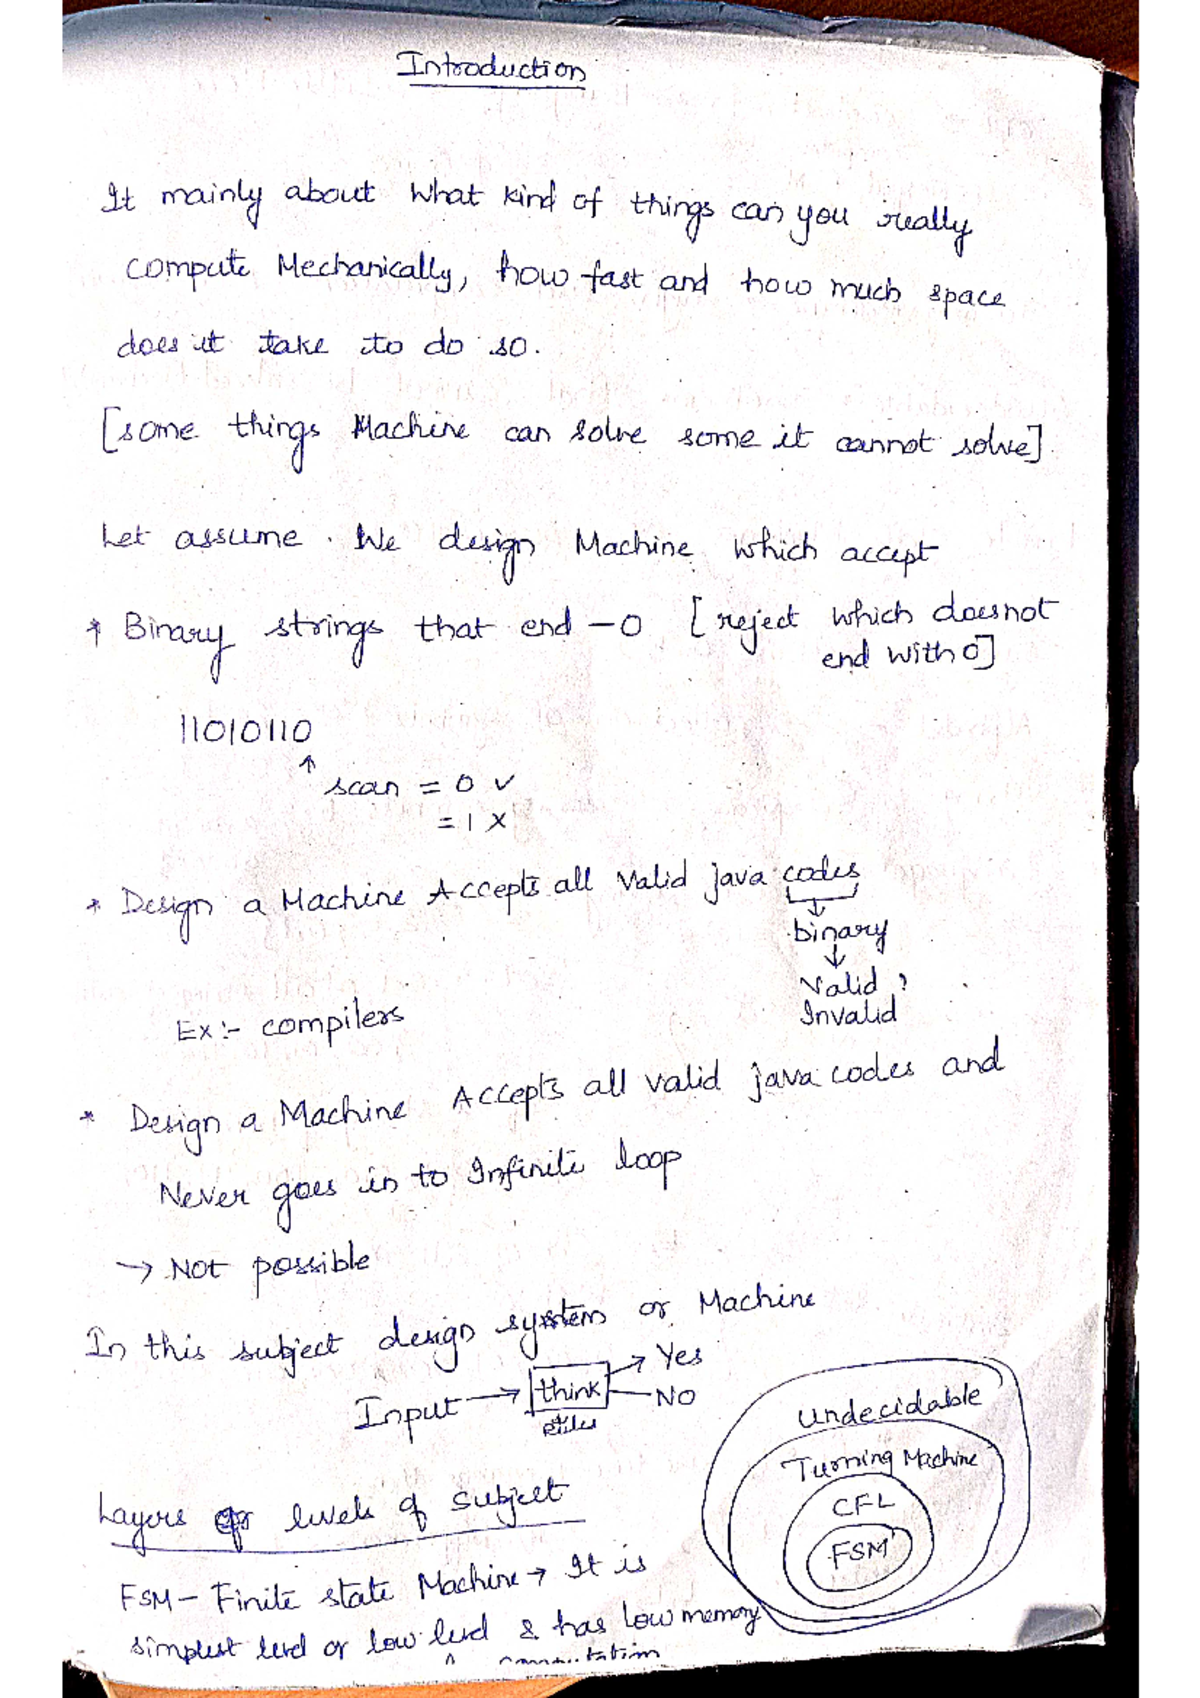 Introduction
It mainly about What kind of things can you really
compute Mechanically, how fast and how much space
does it take to do so.
[some things Machine can solve some it cannot solve].
Let assume. We design Machine which accept
* Binary strings that end - 0 [reject which doesnot
end with 0]
11010110
↑
scan = 0 ✓
= 1 X
* Design a Machine Accepts all Valid java codes
↓
binary
↓
Valid ?
Invalid
Ex:- compilers
* Design a Machine Accepts all valid java codes and
Never goes in to Infinite loop
→ Not possible
In this subject design system or Machine
Input → think → Yes
— NO
Undecidable
Turning Machine
CFL
FSM
Layers or levels of subject
FSM - Finite state Machine → It is
simplest level or low level & has low memory